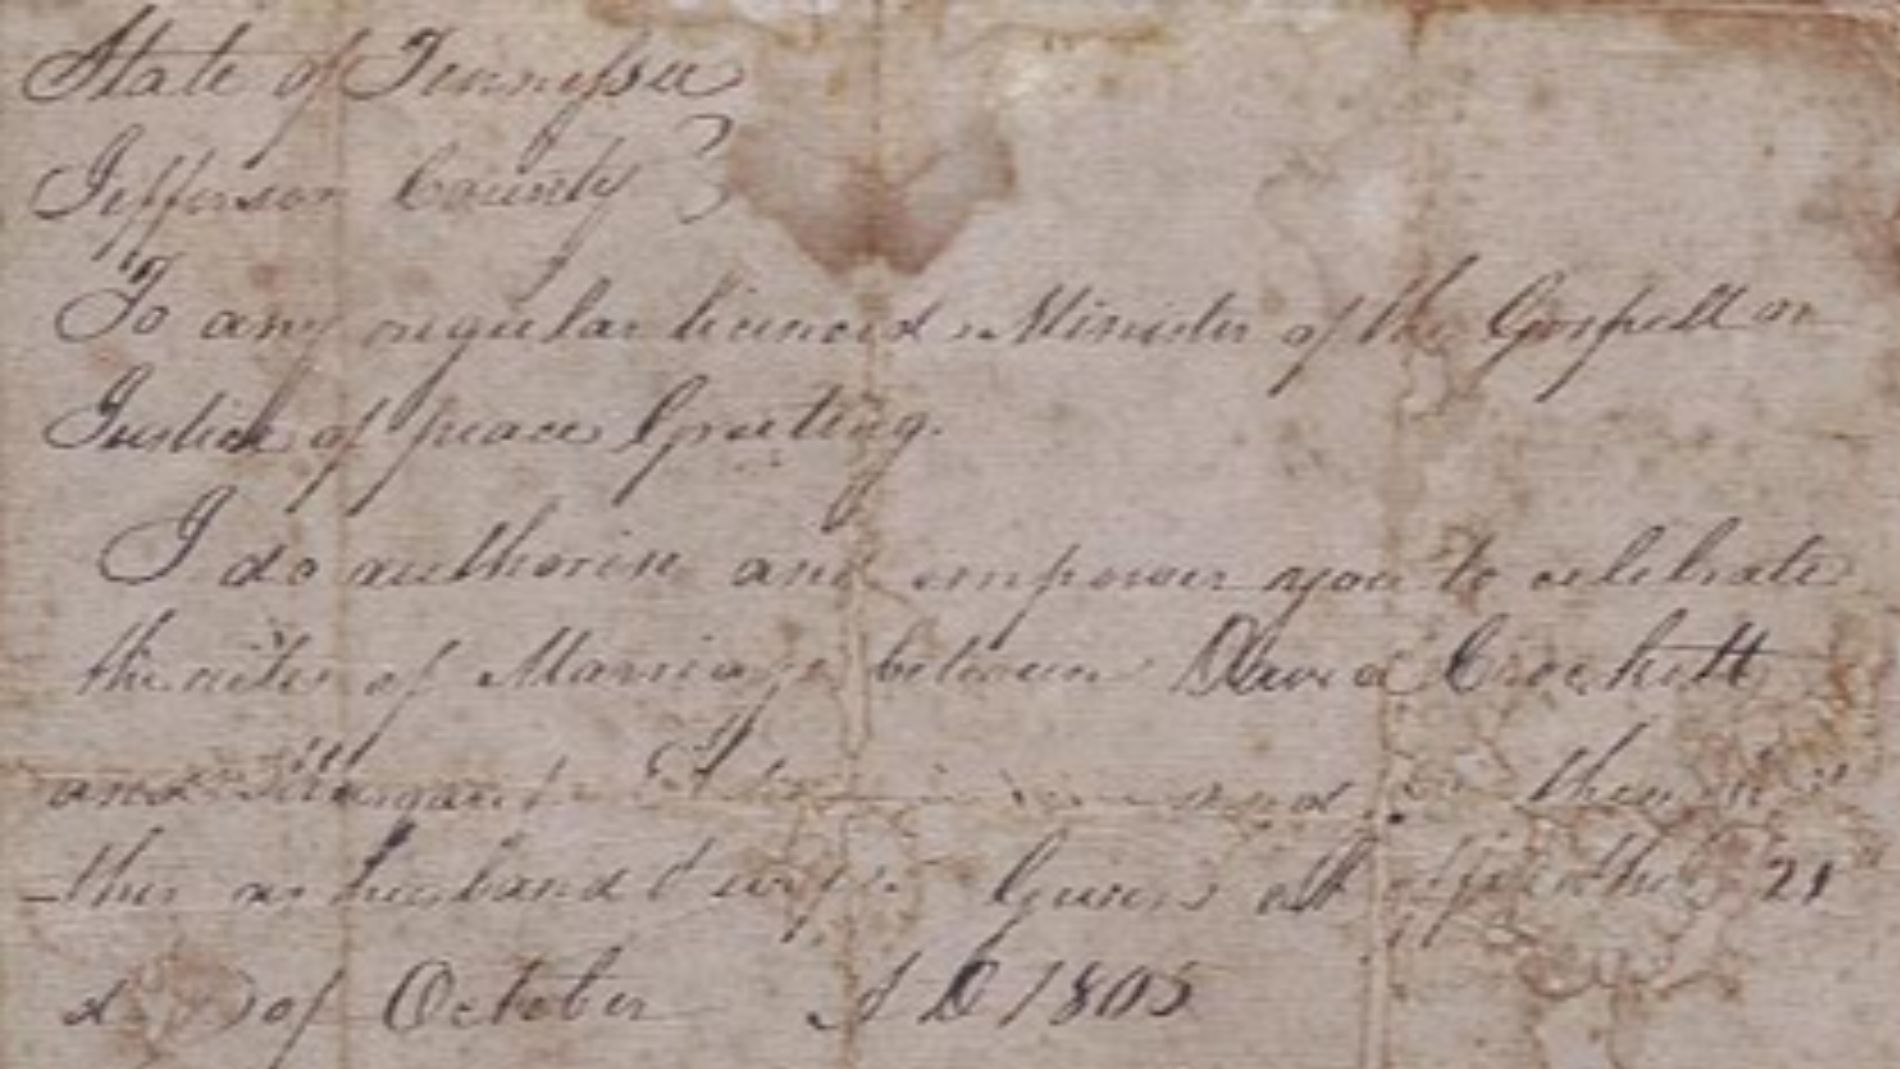 State of Tennessee
Jefferson County }
To any regular licenced Minister of the Gospell or
Justice of peace Greeting.
I do authorise and empower you to celebrate
the rites of Marriage between David Crockett
and Margaret Elder and
ther as husband & wife. Given at office the 21
day of October A D 1805